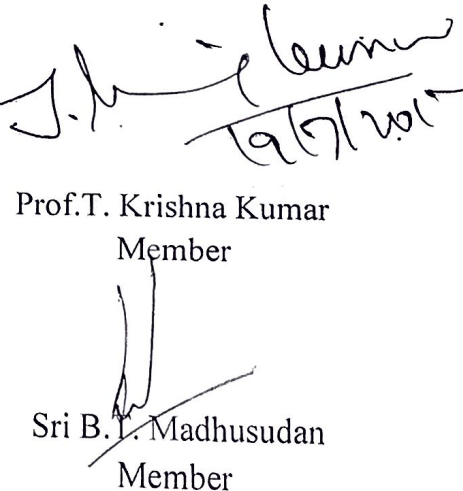 Kumar
Prof.T. Krishna Kumar
Member
Sri B. Madhusudan
Member